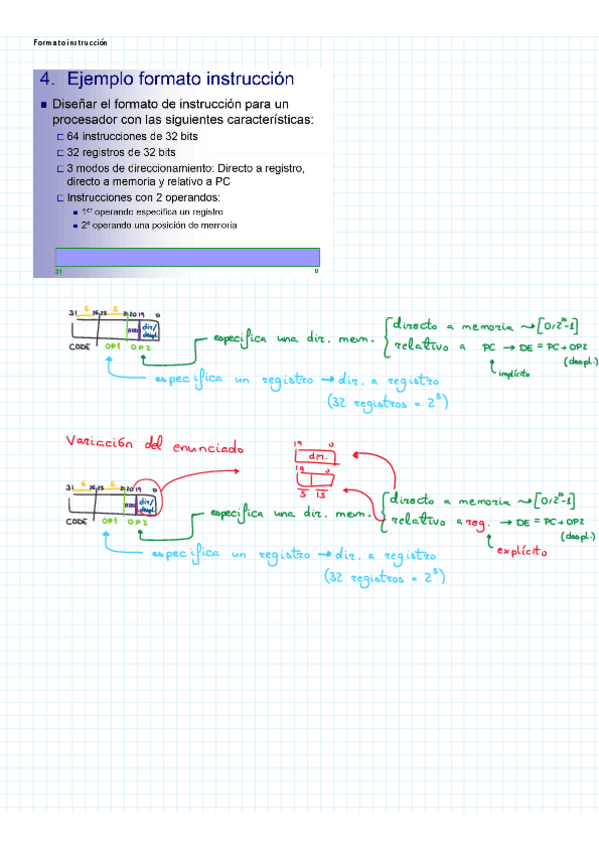 Formato instrucción
4. Ejemplo formato instrucción
Diseñar el formato de instrucción para un
procesador con las siguientes características:
64 instrucciones de 32 bits
32 registros de 32 bits
3 modos de direccionamiento: Directo a registro,
directo a memoria y relativo a PC
Instrucciones con 2 operandos:
1er operando especifica un registro
2º operando una posición de memoria
31 0
6 5
31 26 25 21 20 19 0
dir/
despl.
CODE OP1 OP2
especifica una dir. mem.
directo a memoria → [0, 2ⁿ-1]
relativo a PC → DE = PC + OP2
(despl.)
implícito
especifica un registro → dir. a registro
(32 registros = 2⁵)
Variación del enunciado
19 0
dm.
19 0
5 15
6 5
31 26 25 21 20 19 0
dir/
despl.
CODE OP1 OP2
especifica una dir. mem.
directo a memoria → [0, 2ⁿ-1]
relativo a reg. → DE = PC + OP2
(despl.)
explícito
especifica un registro → dir. a registro
(32 registros = 2⁵)